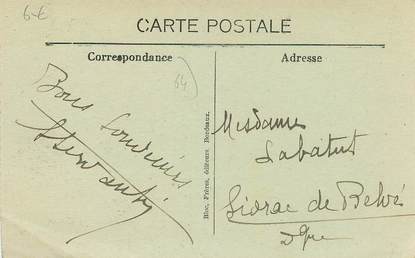 6-6
CARTE POSTALE
Correspondance
Adresse
64
Bons Souvenirs
Bloc, Frères, éditeurs Bordeaux.
Mesdames
Labatut
Siorac de Belvès
Dgne